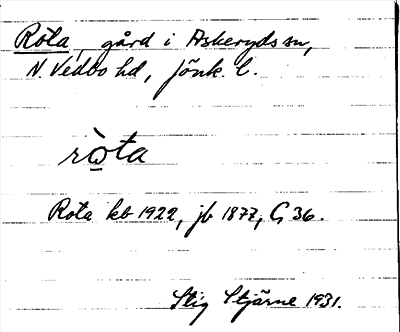 Röta, gård i Askeryds sn,
N. Vedbo hd, Jönk. l.
rò̱ta
Rota kb 1922, jb 1877, G 36.
Stig Stjärne 1931.